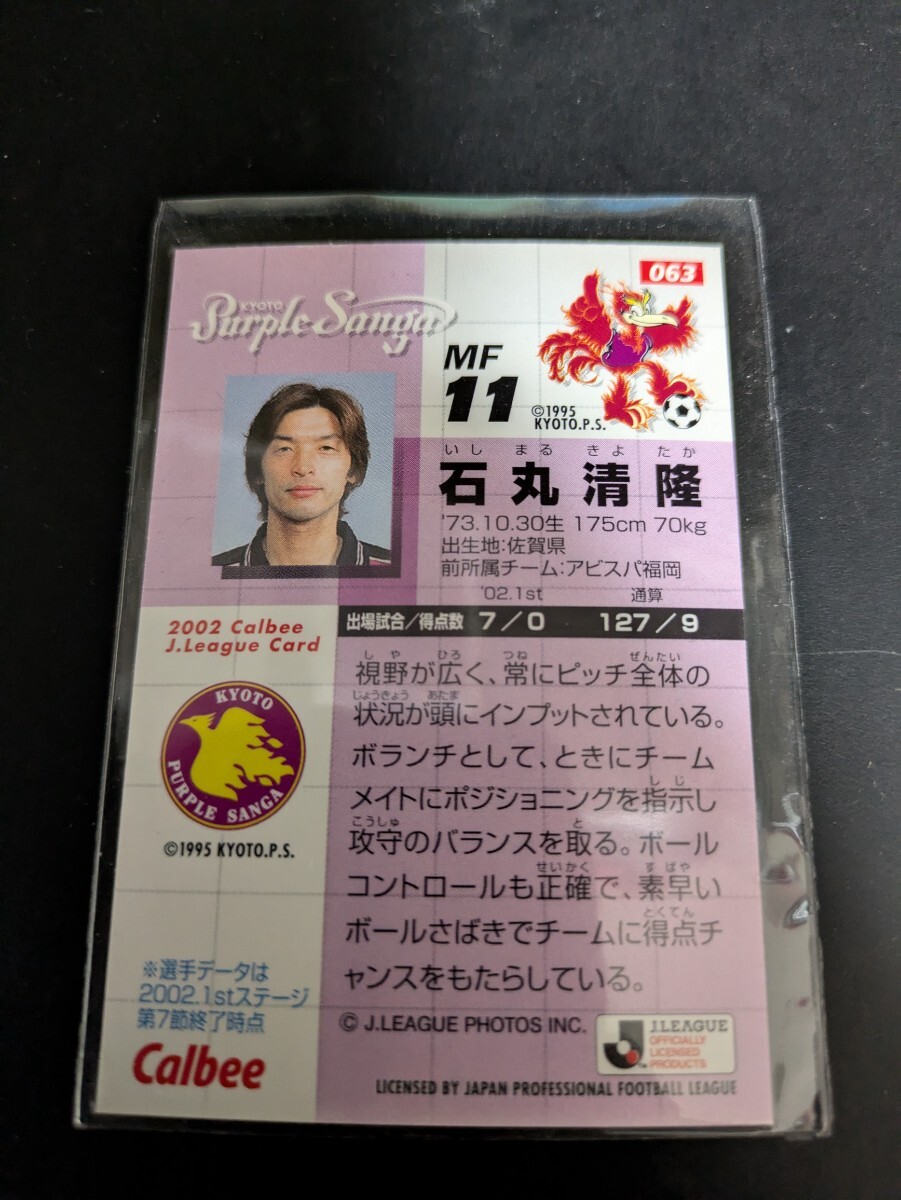 063
KYOTO
Purple Sanga
MF
11
©1995
KYOTO.P.S.
いし まる きよ たか
石丸清隆
'73.10.30生 175cm 70kg
出生地:佐賀県
前所属チーム:アビスパ福岡
'02.1st 通算
出場試合/得点数 7/0 127/9
2002 Calbee
J.League Card
KYOTO
PURPLE SANGA
©1995 KYOTO.P.S.
しや ひろ つね ぜんたい
視野が広く、常にピッチ全体の
じょうきょう あたま
状況が頭にインプットされている。
ボランチとして、ときにチーム
しじ
メイトにポジショニングを指示し
こうしゅ と
攻守のバランスを取る。ボール
せいかく すばや
コントロールも正確で、素早い
とくてん
ボールさばきでチームに得点チ
ャンスをもたらしている。
※選手データは
2002.1stステージ
第7節終了時点
Calbee
© J.LEAGUE PHOTOS INC.
J.LEAGUE
OFFICIALLY
LICENSED
PRODUCTS
LICENSED BY JAPAN PROFESSIONAL FOOTBALL LEAGUE